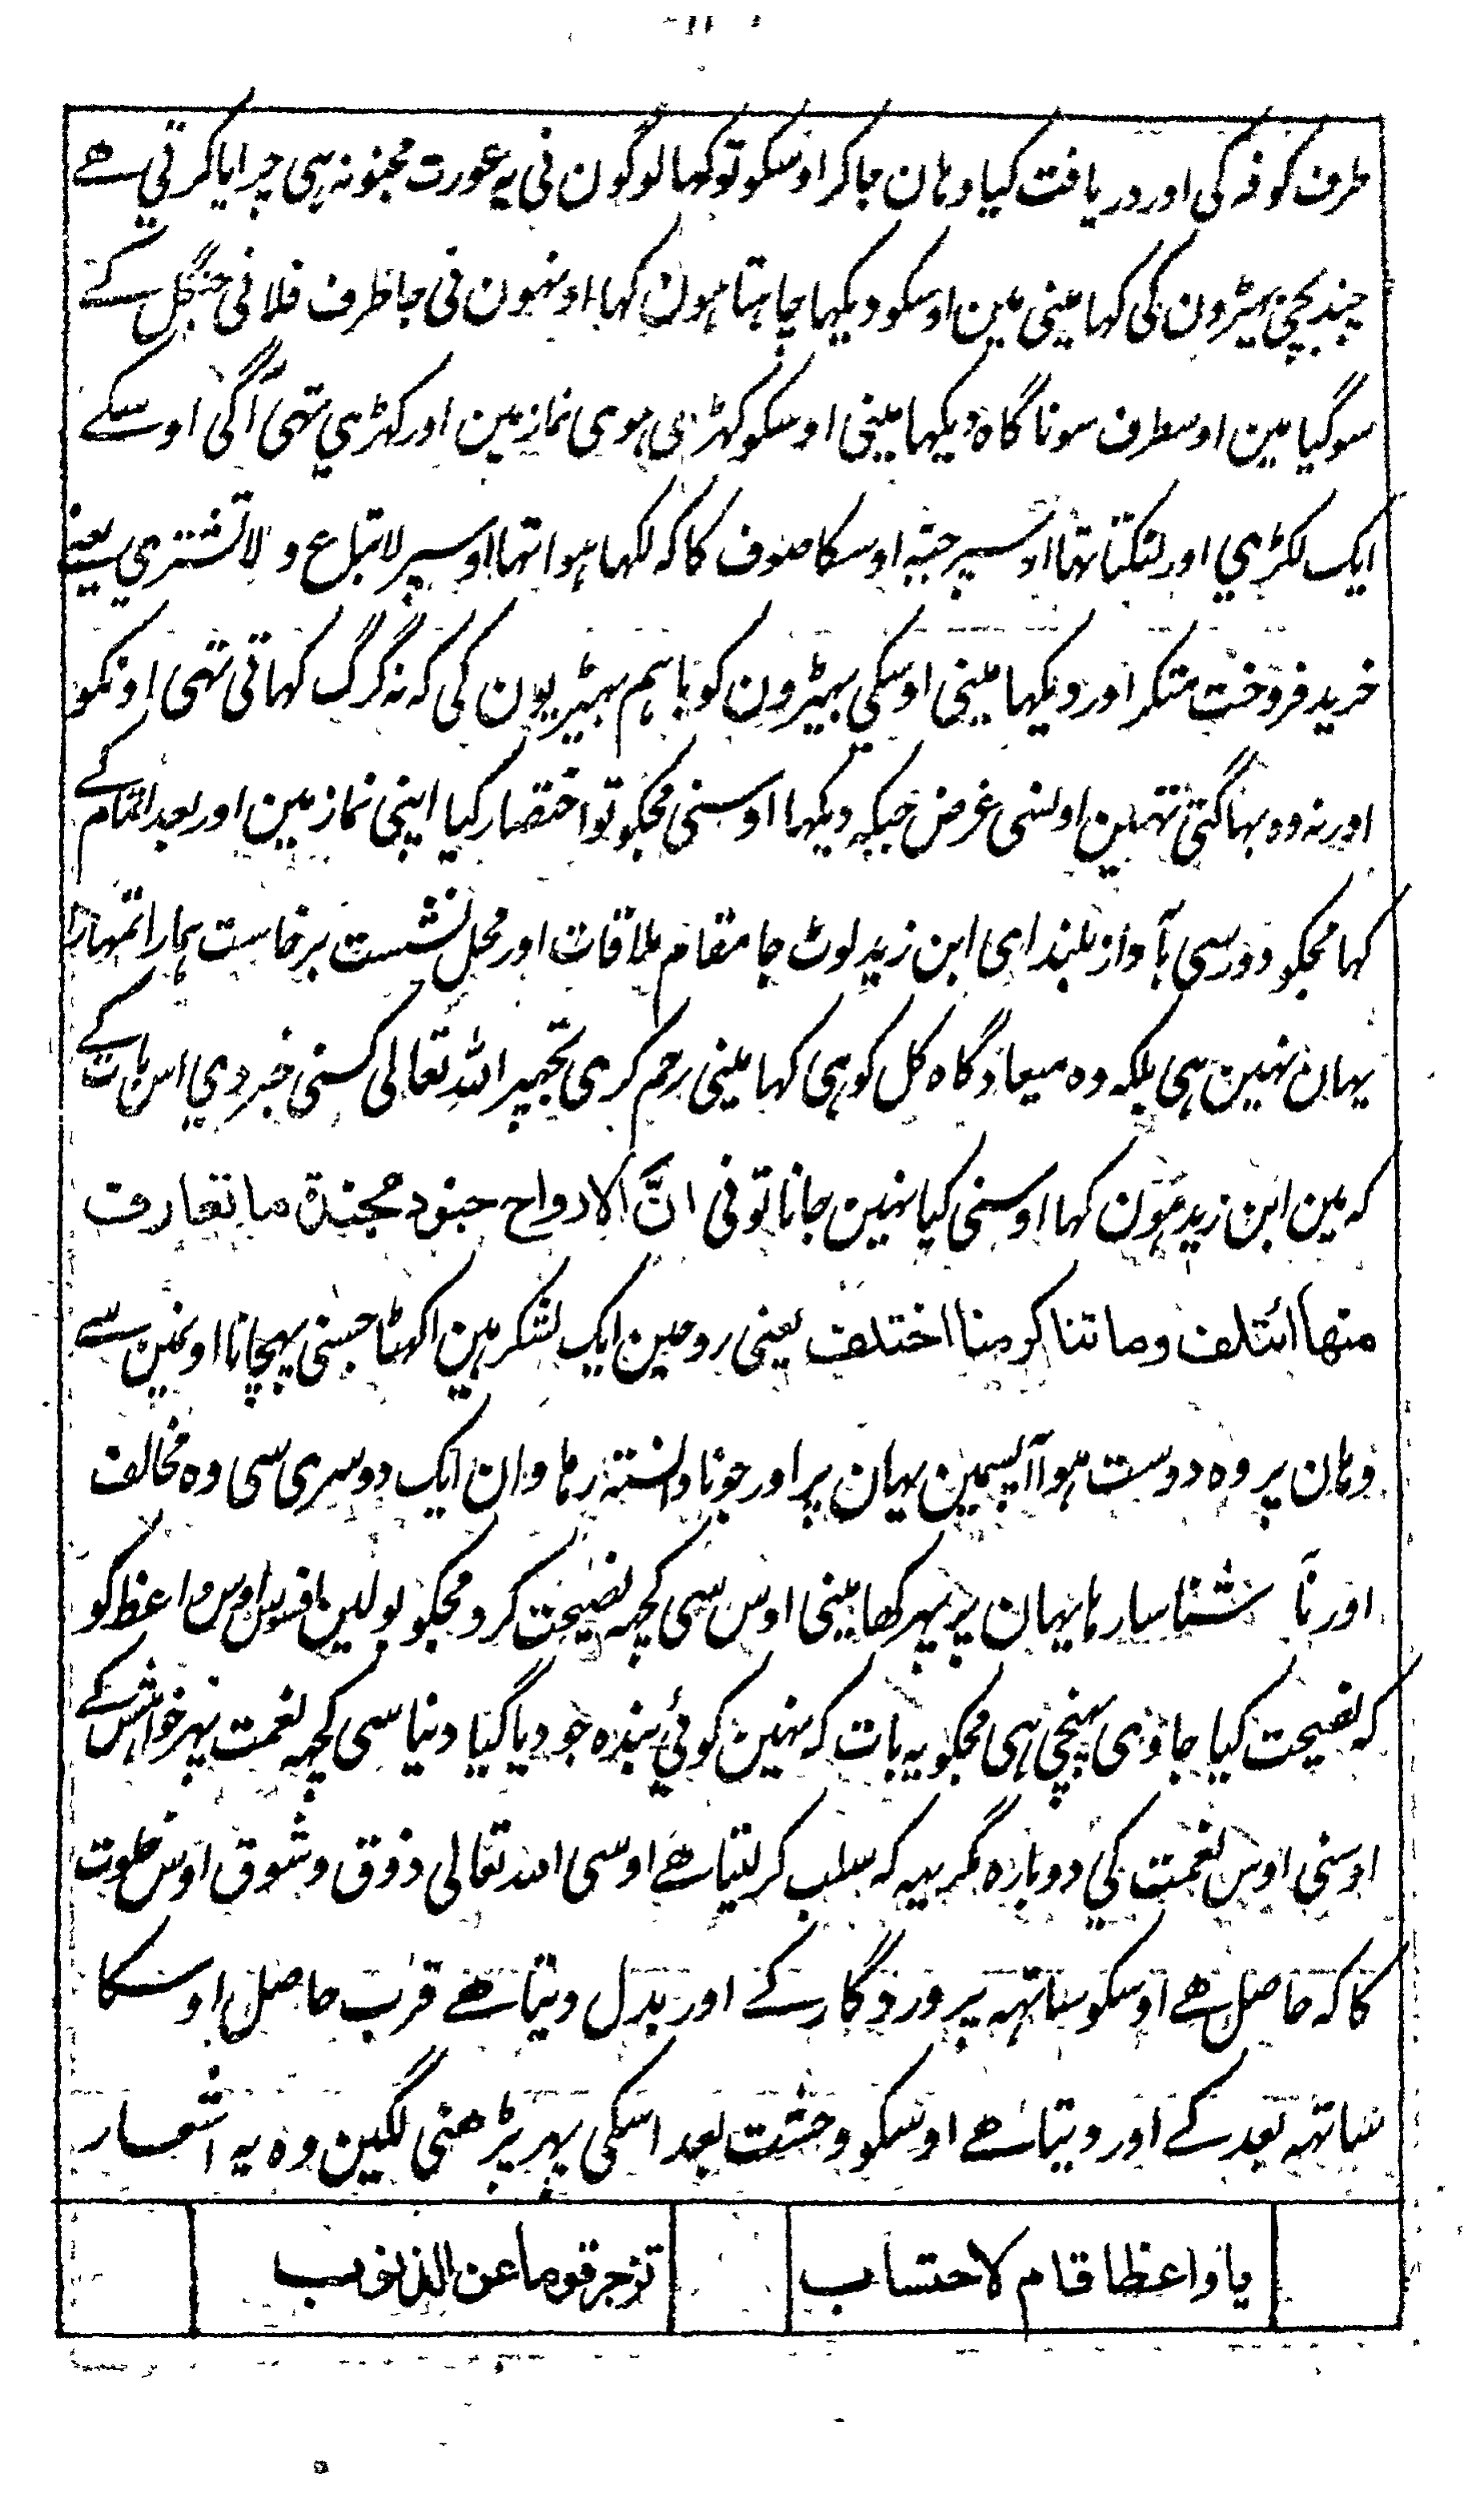 طرف کوفہ کی اور دریافت کیا وہان جاکر اوسکو تو کہا لوگون نی یہ عورت مجنونہ ہی چرایا کرتی ہے
چند بچی بہیڑون کی کہا مینی مین اوسکو دیکہا چاہتا ہون کہا اونہون نی جا طرف فلانی جنگل کے
سو گیا مین اوسطرف سو ناگاہ دیکہا مینی اوسکو کہڑی ہوی نماز مین اور کہڑی تہی آگی اوسکے
ایک لکڑی اور لٹکتا تہا اوسپر جبہ اوسکا صوف کا کہ لکہا ہوا تہا اوسپر لا تباع ولا تشتری یعنے
خرید فروخت متکر اور دیکہا مینی اوسکی بہیڑون کو باہم بہیڑیون کی کہ نہ گرگ کہاتی تہی اونکو
اور نہ وہ بہاگتی تہین اونسی غرض جبکہ دیکہا اوسنی مجکو تو اختصار کیا اپنی نماز مین اور بعد اتمام کے
کہا مجکو دور سی بآواز بلند ای ابن زید لوٹ جا مقام ملاقات اور محل نشست برخاست ہمارا تمہارا
یہان نہین ہی بلکہ وہ میعادگاہ کل کو ہی کہا مینی رحم کری تجہپر اللہ تعالی کسنی خبر دی اس بات کے
کہ مین ابن زید ہون کہا اوسنی کیا نہین جانا تو نی انّ الارواح جنود مجندۃ ما تعارف
منھا ائتلف وما تناکر منا اختلف یعنی روحین ایک لشکر ہین اکہٹا جسنی پہچانا اونمین سے
وہان پر وہ دوست ہوا آپسمین یہان پر اور جو نادانستہ رہا وان ایک دوسری سی وہ مخالف
اور نا شناسا رہا یہان پر پہر کھا مینی اوس سی کچہ نصیحت کرو مجکو بولین افسوس اوس واعظ کو
کہ نصیحت کیا جاوی پہنچی ہی مجکو یہ بات کہ نہین کوئی بندہ جو دیا گیا دنیا سی کچہ نعمت پہر خواہش کے
اوسنی اوس نعمت کی دوبارہ مگر یہہ کہ سلب کر لیتا ہے اوسی اللہ تعالی ذوق و شوق اوس خلوت
کا کہ حاصل ہے اوسکو ساتہہ پروردگار کے اور بدل دیتا ہے قرب حاصل اوسکا
ساتہہ بعد کے اور دیتا ہے اوسکو وحشت بعد اسکی پہر پڑھنی لگین وہ یہ اشعار
یا واعظا قام لاحتساب تزجر قوما عن الذنوب